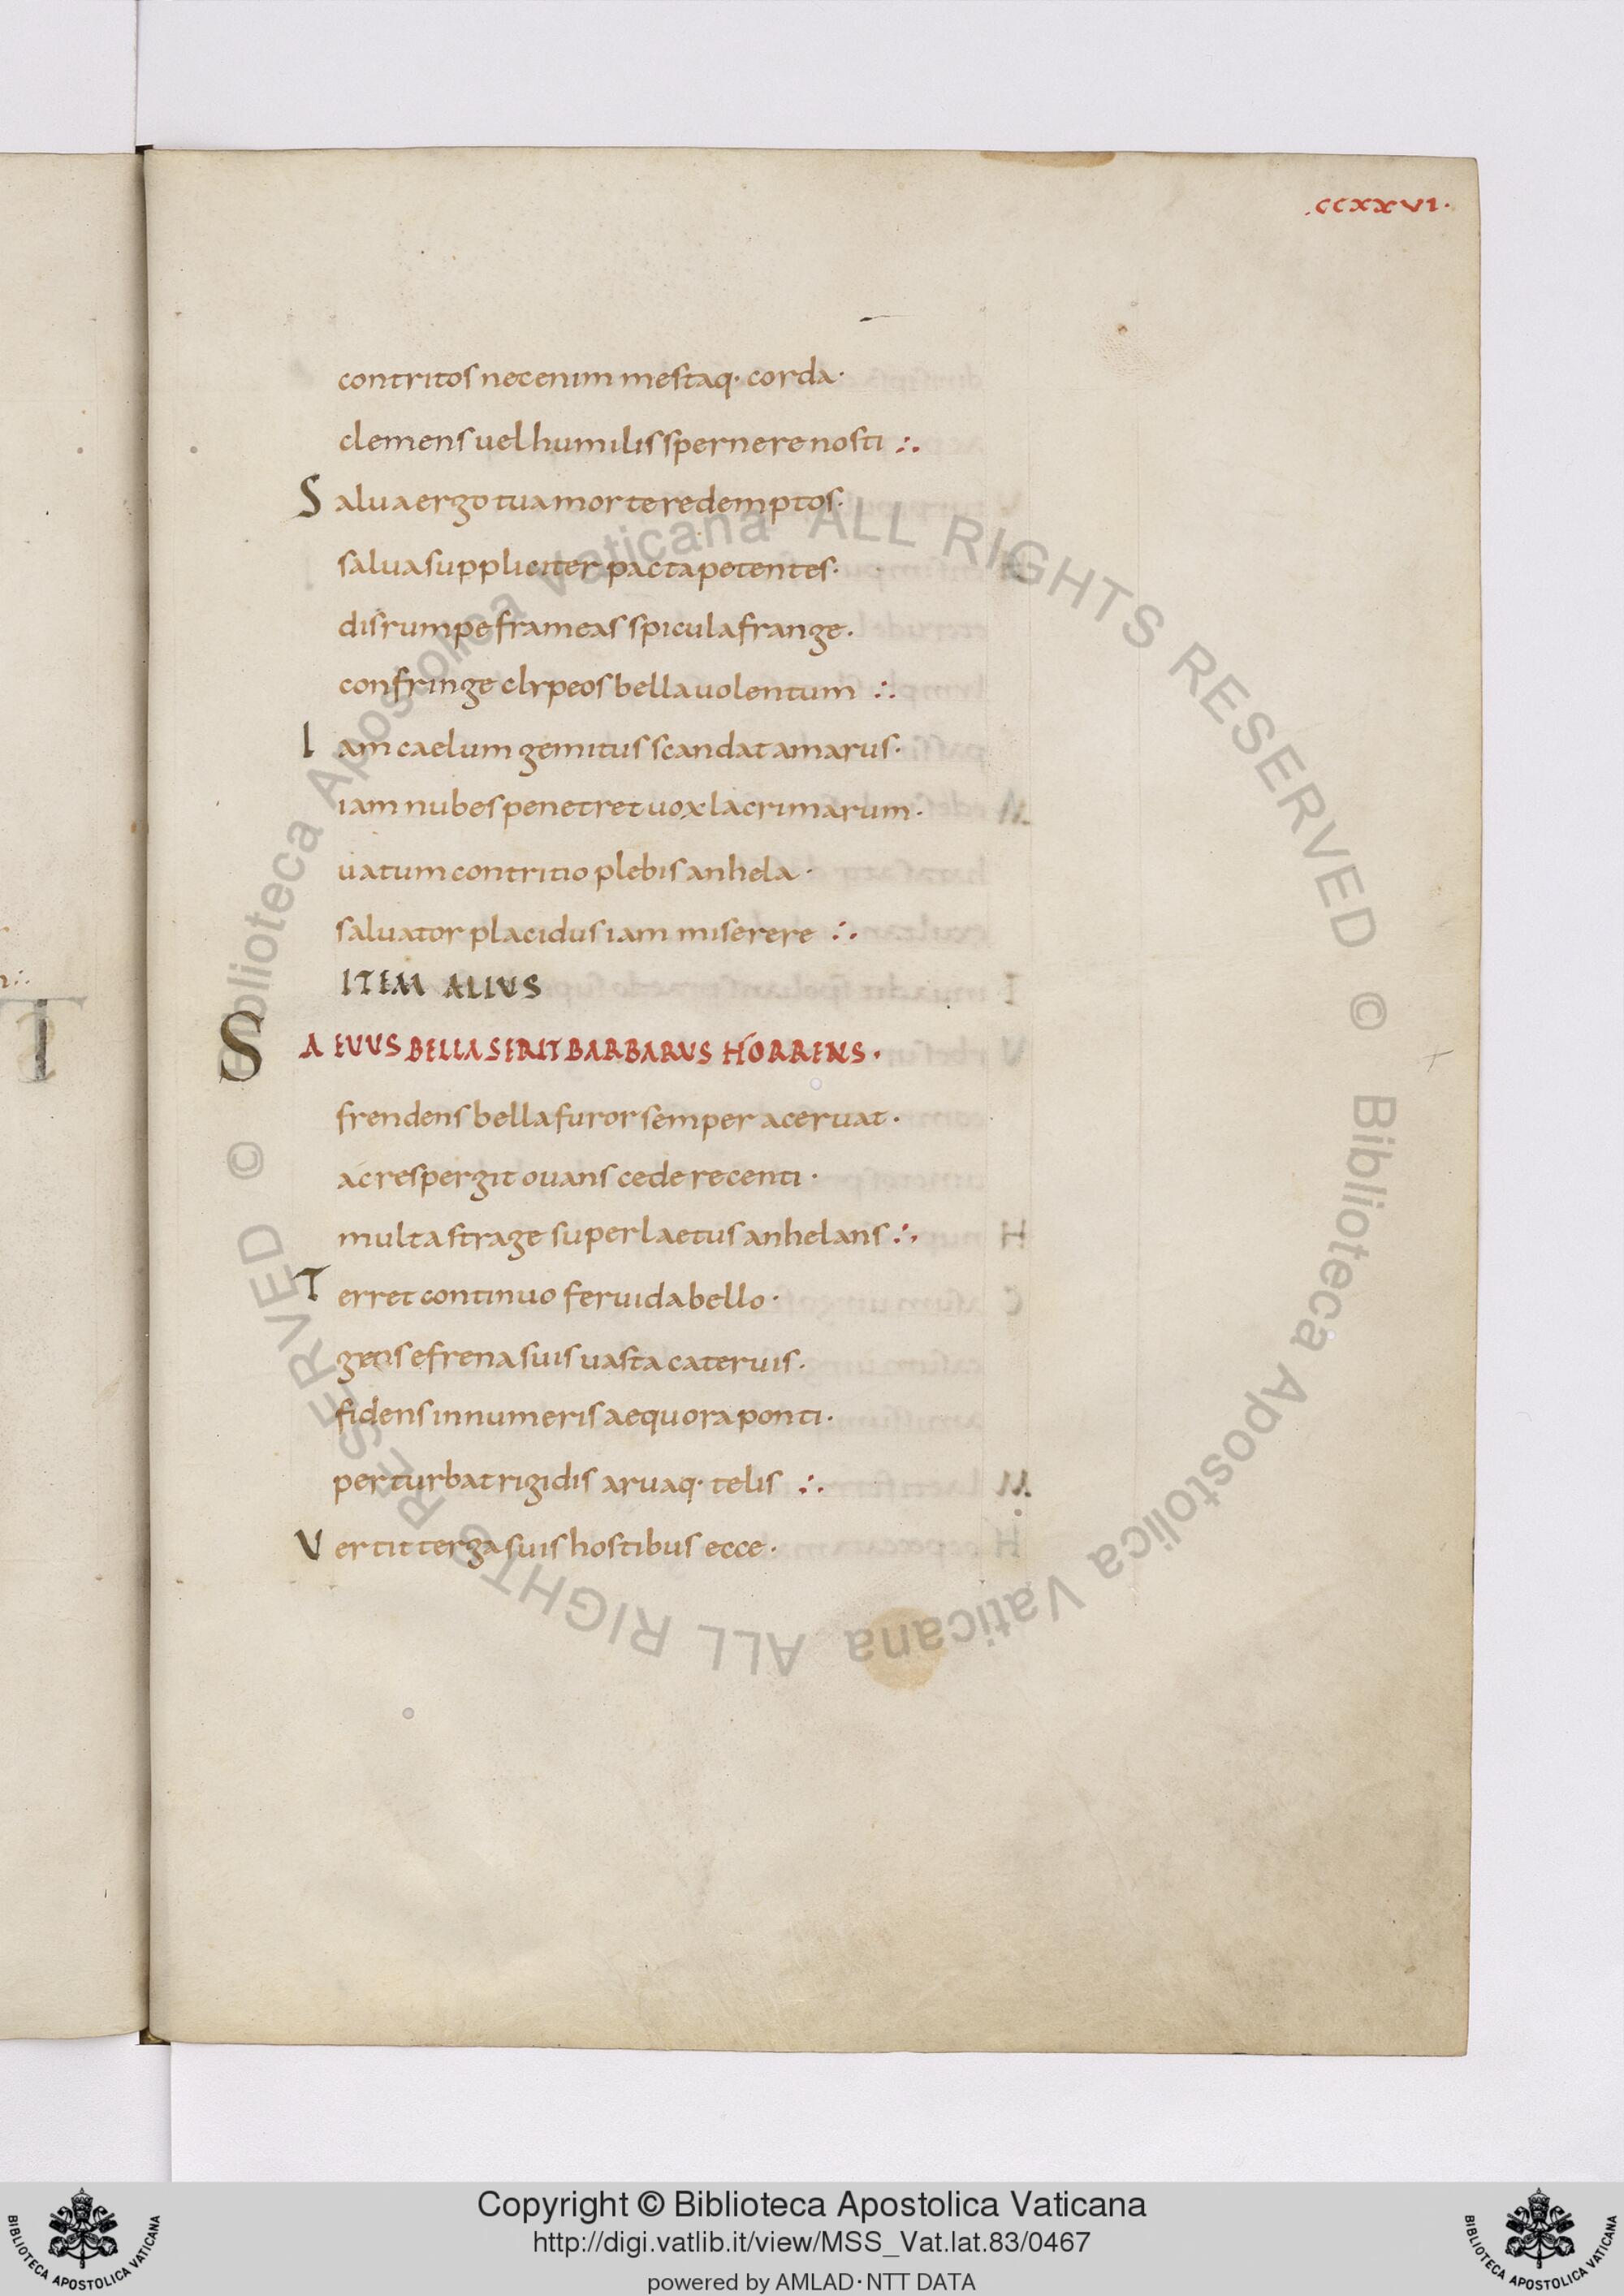 .ccxxvi.
contritos nec enim mestaq· corda·
clemens uel humilis spernere nosti ∴
Salua ergo tua morte redemptos·
salua suppliciter pacta petentes·
disrumpe frameas spicula frange·
confringe clypeos bella uolentum ∴
Iam caelum gemitus scandat amarus·
iam nubes penetret uox lacrimarum·
uatum contritio plebis anhela·
saluator placidus iam miserere ∴
ITEM ALIUS
SAEUUS BELLA SERIT BARBARUS HORRENS·
frendens bella furor semper aceruat·
ac respergit ouans cede recenti·
multa strage super laetus anhelans ∴
Terret continuo feruida bello·
gens efrena suis uasta cateruis·
fidens innumeris aequora ponti·
perturbat rigidis aruaq· telis ∴
Uertit terga suis hostibus ecce·
© Biblioteca Apostolica Vaticana ALL RIGHTS RESERVED
© Biblioteca Apostolica Vaticana ALL RIGHTS RESERVED
Copyright © Biblioteca Apostolica Vaticana
http://digi.vatlib.it/view/MSS_Vat.lat.83/0467
powered by AMLAD·NTT DATA
BIBLIOTECA APOSTOLICA VATICANA
BIBLIOTECA APOSTOLICA VATICANA